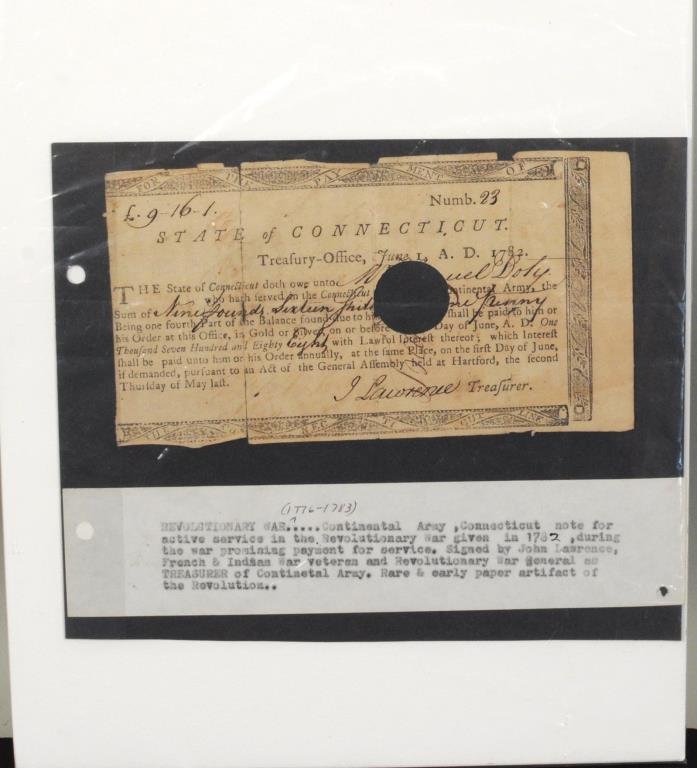 FOR THE PAY MENT OF
£. 9-16-1. Numb. 23
STATE of CONNECTICUT.
Treasury-Office, June 1, A. D. 1782.
THE State of Connecticut doth owe unto uel Doty
who hath served in the Connecticut ontinental Army, the
Sum of Nine Pounds Sixteen Shill ne Penny
Being one fourth Part of the Balance found due to hi shall be paid to him or
his Order at this Office, in Gold or Silver, on or before Day of June, A. D. One
Thousand Seven Hundred and Eighty Eight with Lawful Interest thereof; which Interest
shall be paid unto him or his Order annually, at the same Place, on the first Day of June,
if demanded, pursuant to an Act of the General Assembly held at Hartford, the second
Thursday of May last.
J Lawrence Treasurer.
NEC TI CUT
(1776-1783)
REVOLUTIONARY WAR.....Continental Army ,Connecticut note for
active service in the Revolutionary War given in 1782 ,during
the war promising payment for service. Signed by John Lawrence,
French & Indian War veteran and Revolutionary War General as
TREASURER of Continetal Army. Rare & early paper artifact of
the Revolution..